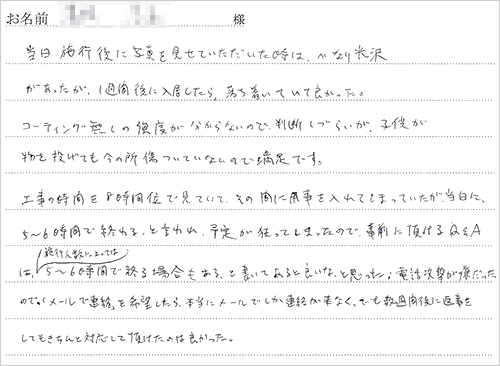 お名前 様
当日施行後に写真を見せていただいた時は、かなり光沢
があったが、1週間後に入居したら、落ち着いていて良かった。
コーティング無しの強度が分からないので、判断しづらいが、子供が
物を投げても今の所傷ついていないので満足です。
工事の時間を8時間位で見ていて、その間に用事を入れてしまっていたが、当日に、
5～6時間で終わる、と言われ、予定が狂ってしまったので、事前に頂けるQ&A
施行人数によっては
は、5～6時間で終る場合もある、と書いてあると良いな、と思った；電話攻撃が嫌だった
ので、「メールで連絡」を希望したら、本当にメールでしか連絡が来なく、でも数週間後に返事を
してもきちんと対応して頂けたのは良かった。